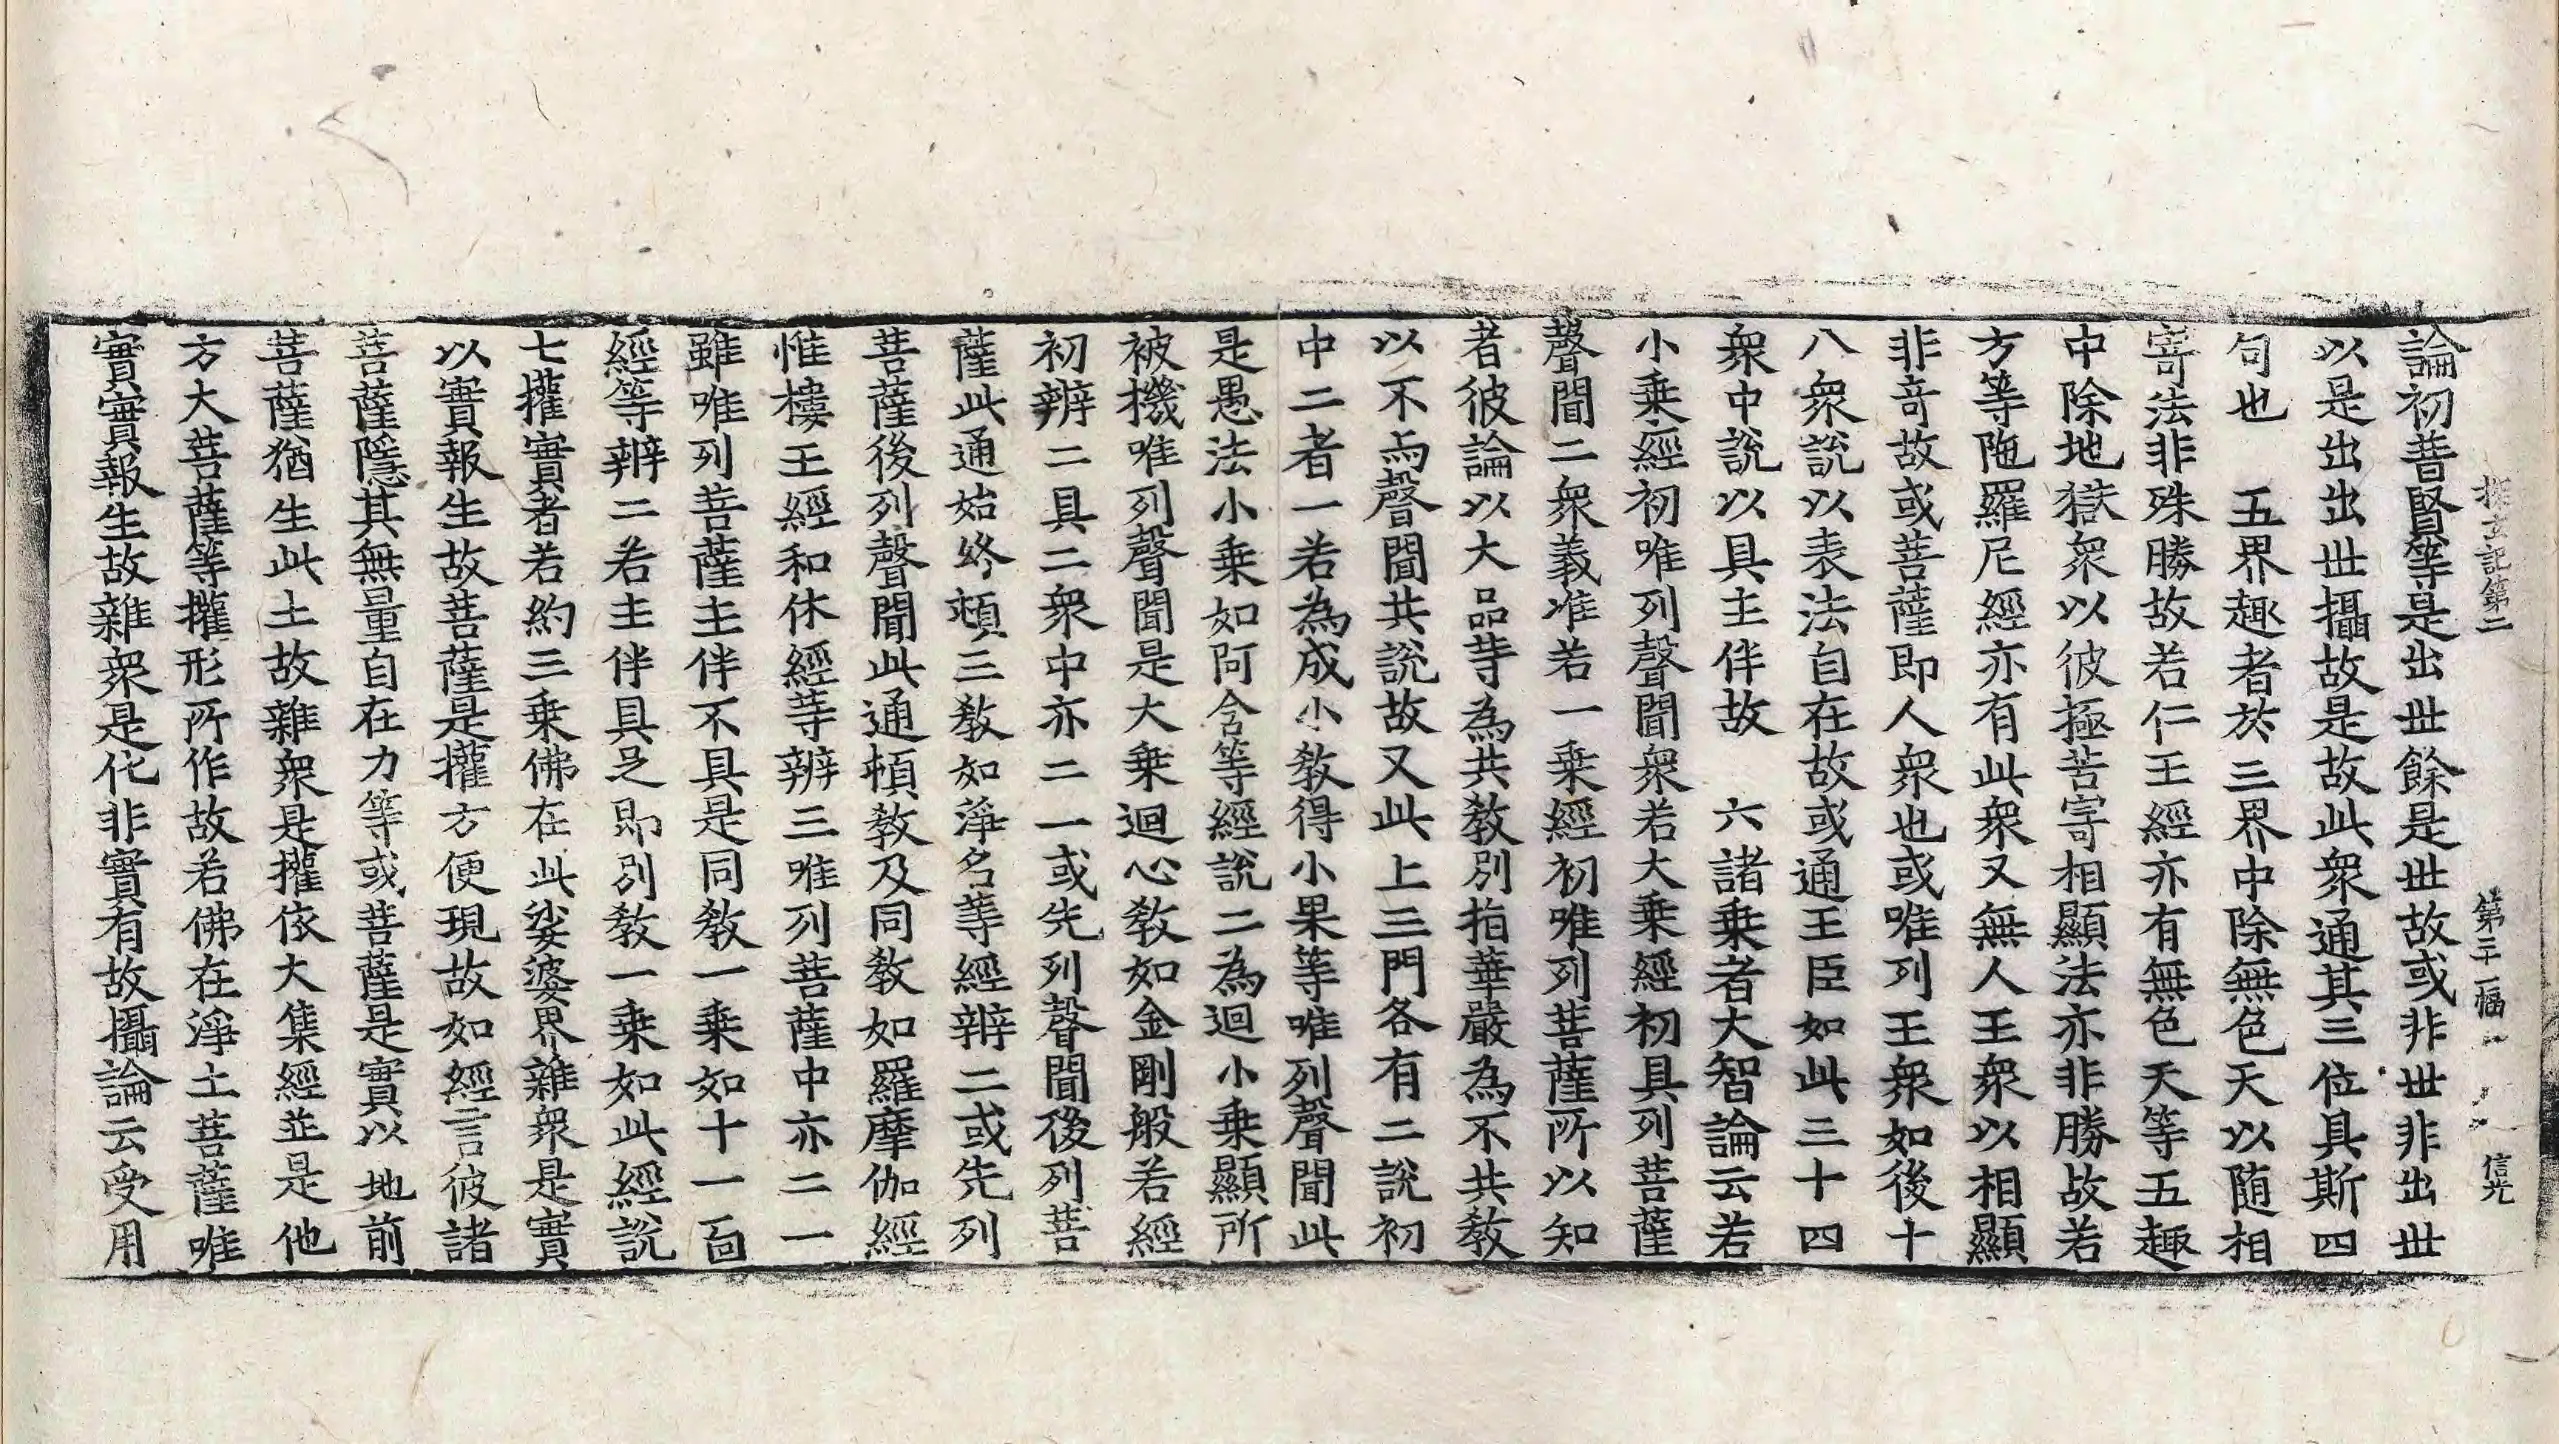 探玄記第二 第三十二幅 信光
論初普賢等是出世餘是世故或非世非出世
以是出出世攝故是故此衆通其三位具斯四
句也 五界趣者於三界中除無色天以随相
寄法非殊勝故若仁王經亦有無色天等五趣
中除地獄衆以彼極苦寄相顯法亦非勝故若
方等陁羅尼經亦有此衆又無人王衆以相顯
非奇故或菩薩即人衆也或唯列王衆如後十
八衆說以表法自在故或通王臣如此三十四
衆中說以具主伴故 六諸乗者大智論云若
小乗經初唯列聲聞衆若大乗經初具列菩薩
聲聞二衆義准若一乗經初唯列菩薩所以知
者彼論以大品等為共教別指華嚴為不共教
以不与聲聞共說故又此上三門各有二說初
中二者一若為成小教得小果等唯列聲聞此
是愚法小乗如阿含等經說二為迴小乗顯所
被機唯列聲聞是大乗迴心教如金剛般若經
初辨二具二衆中亦二一或先列聲聞後列菩
薩此通始終頓三教如淨名等經辨二或先列
菩薩後列聲聞此通頓教及同教如羅摩伽經
惟樓王經和休經等辨三唯列菩薩中亦二一
雖唯列菩薩主伴不具是同教一乗如十一面
經等辨二若主伴具足即別教一乗如此經說
七權實者若約三乗佛在此娑婆界雜衆是實
以實報生故菩薩是權方便現故如經言彼諸
菩薩隱其無量自在力等或菩薩是實以地前
菩薩猶生此土故雜衆是權依大集經並是他
方大菩薩等權形所作故若佛在淨土菩薩唯
實實報生故雜衆是化非實有故攝論云受用